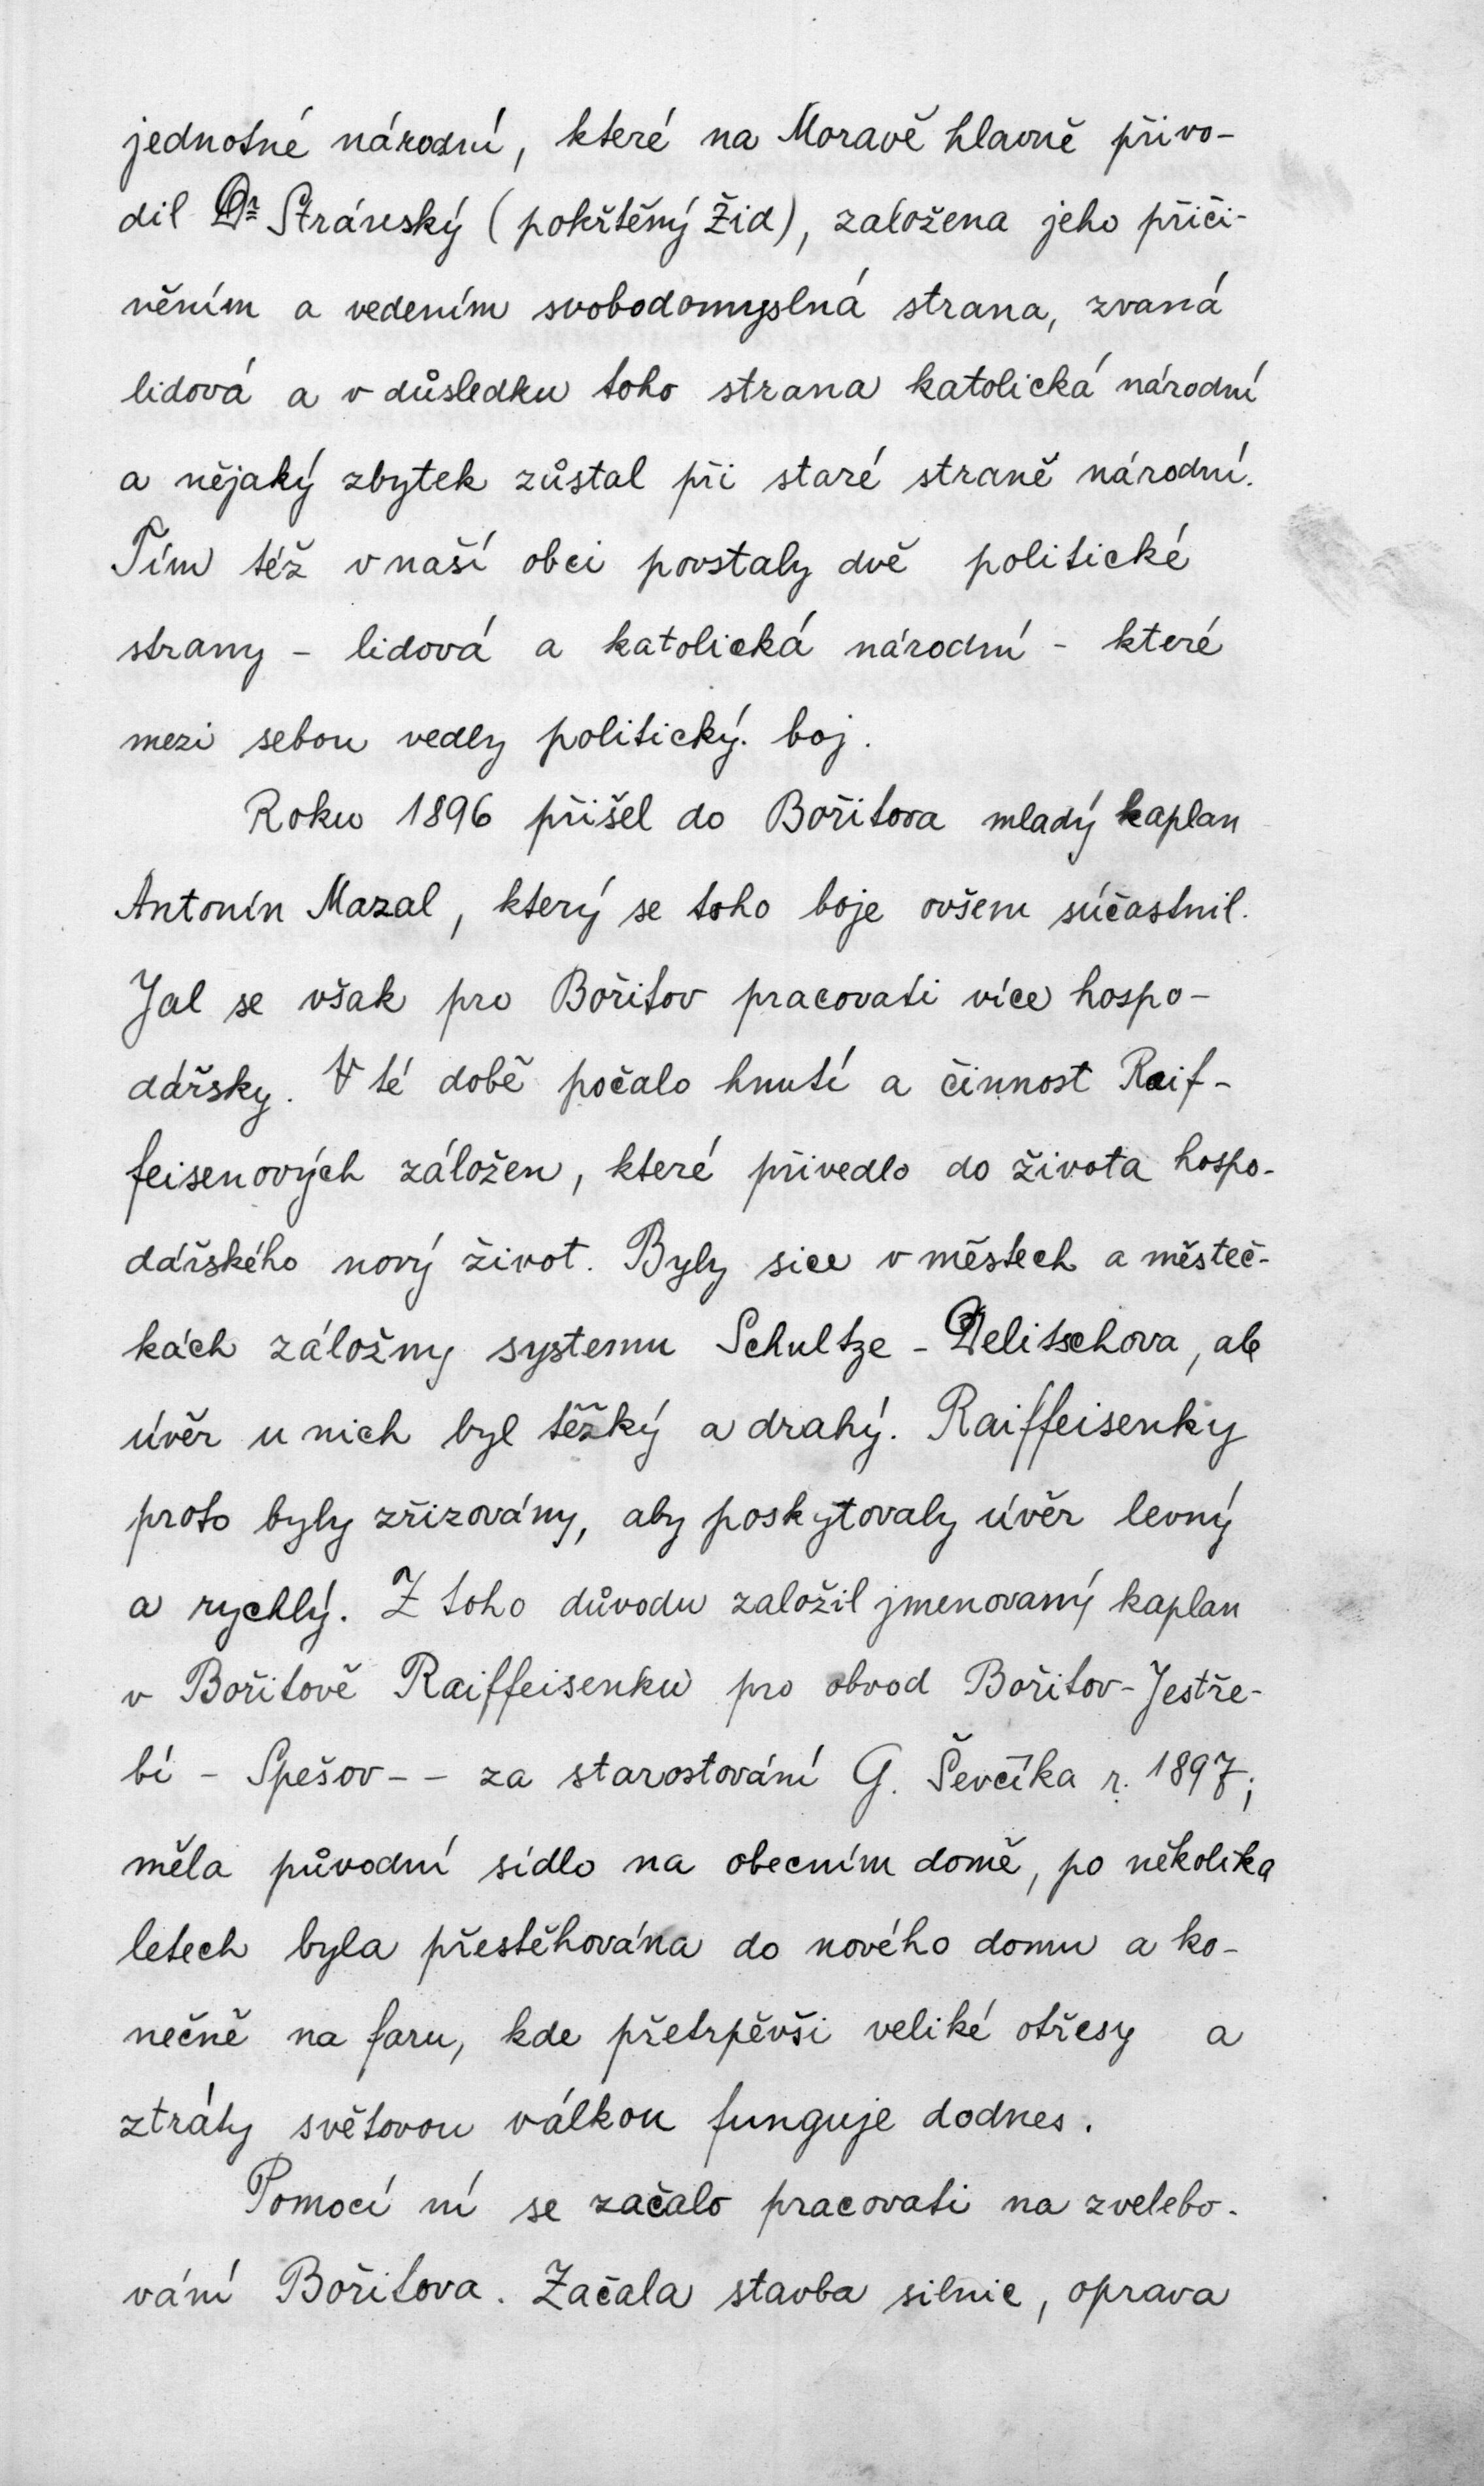 jednotné národní, které na Moravě hlavně přivo-
dil Dr Stránský (pokřtěný Žid), založena jeho přiči-
něním a vedením svobodomyslná strana, zvaná
lidová a v důsledku toho strana katolická národní
a nějaký zbytek zůstal při staré straně národní.
Tím též v naší obci povstaly dvě politické
strany - lidová a katolická národní - které
mezi sebou vedly politický boj.
Roku 1896 přišel do Bořitova mladý kaplan
Antonín Mazal, který se toho boje ovšem súčastnil.
Jal se však pro Bořitov pracovati více hospo-
dářsky. V té době počalo hnutí a činnost Raif-
feisenových záložen, které přivedlo do života hospo-
dářského nový život. Byly sice v městech a městeč-
kách záložny systemu Schultze - Delitschova, ale
úvěr u nich byl těžký a drahý. Raiffeisenky
proto byly zřizovány, aby poskytovaly úvěr levný
a rychlý. Z toho důvodu založil jmenovaný kaplan
v Bořitově Raiffeisenku pro obvod Bořitov - Jestře-
bí - Spešov - - za starostování G. Ševčíka r. 1897;
měla původní sídlo na obecním domě, po několika
letech byla přestěhována do nového domu a ko-
nečně na faru, kde přetrpěvši veliké otřesy a
ztráty světovou válkou funguje dodnes.
Pomocí ní se začalo pracovati na zvelebo-
vání Bořitova. Začala stavba silnic, oprava